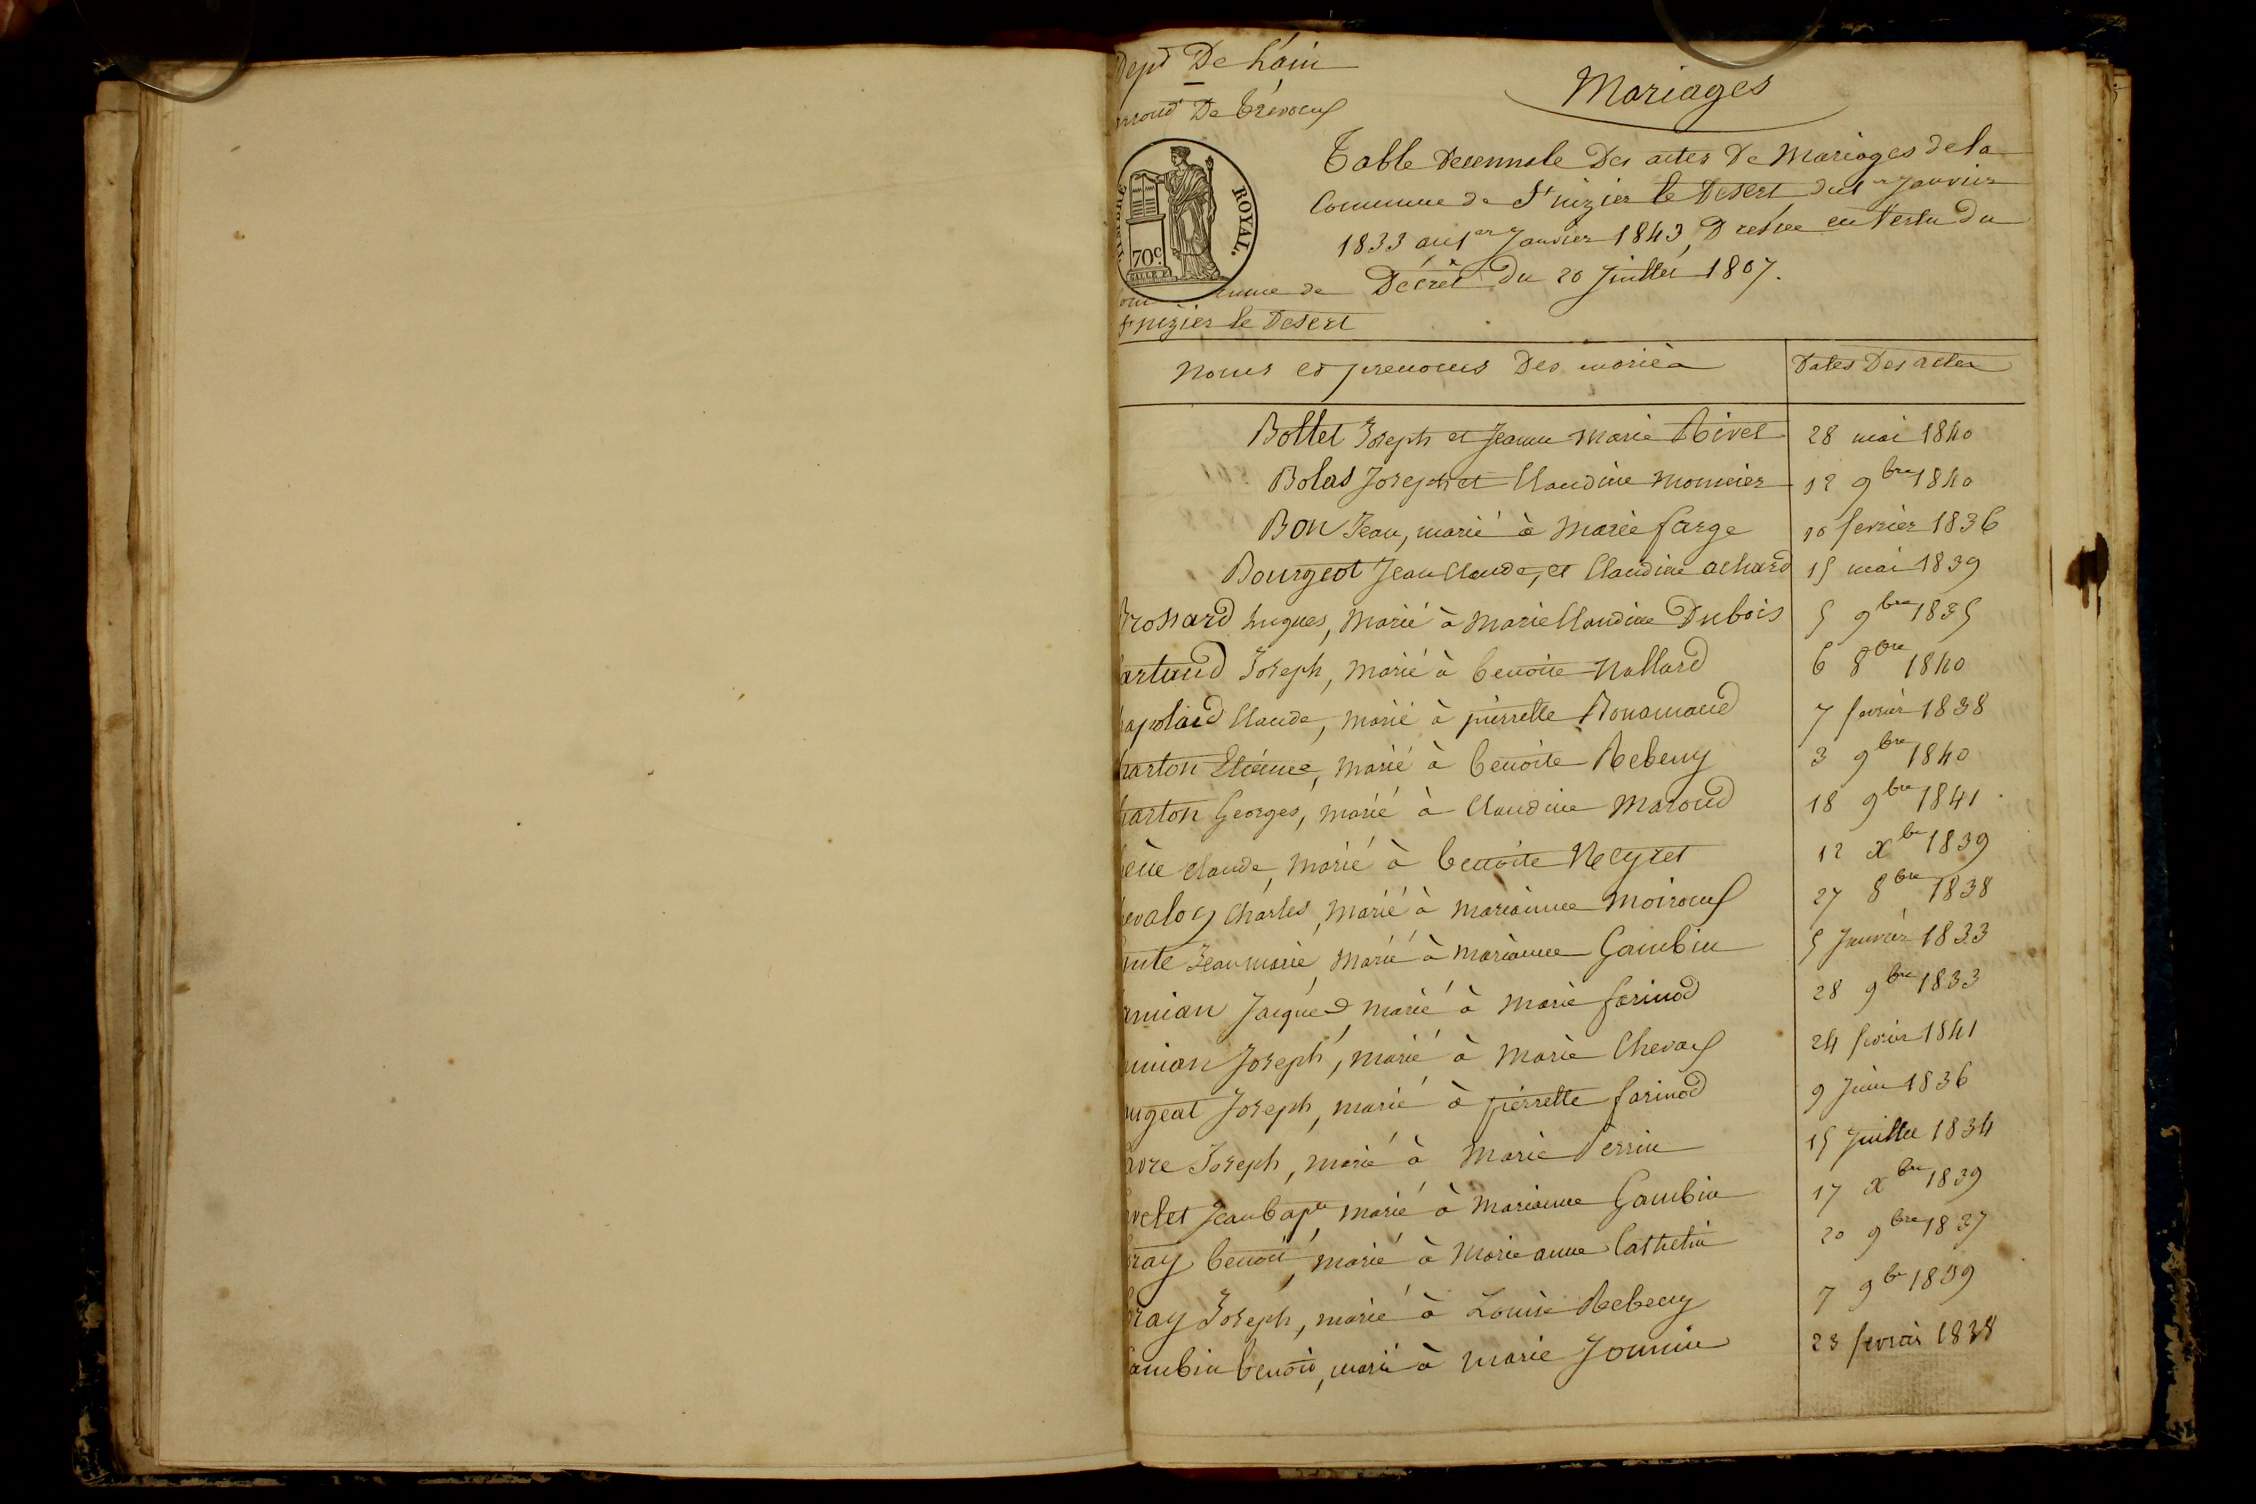 Dept De L'ain
Mariages
arrond De trévoux
Table Decennale Des actes De Mariages de la
Commune de St nizier le Desert du 1er Janvier
1833 au 1er Janvier 1843, Dressée en Vertu Du
Décret Du 20 Juillet 1807.
ROYAL.
70c.
Commune de
St nizier le Desert
Noms et prenoms Des mariés
Dates Des actes
Bollet Joseph et Jeanne Marie Rivet 28 mai 1840
Bolas Joseph et Claudine Monnier 12 9bre 1840
Bon Jean, marié à Marie farge 10 fevrier 1836
Bourgeot Jean Claude, et Claudine achard 15 mai 1839
rossard hugues, Marié à Marie Claudine Dubois 5 9bre 1835
artaud Joseph, Marié à benoite Nallard 6 8bre 1840
apolard Claude, Marié à pierrette Bonamand 7 fevrier 1838
harton Etienne, Marié à benoite Rebeny 3 9bre 1840
harton Georges, Marié à Claudine Maroud 18 9bre 1841
ène Claude, Marié à benoite Neyret 12 xbre 1839
Charles, Marié à Marianne Moiroux 27 8bre 1838
Jean marie, Marié à Marianne Gambin 5 Janvier 1833
amian Jacques, Marié à Marie farinod 28 9bre 1833
mian Joseph, Marié à Marie Chevaux 24 fevrier 1841
ugeat Joseph, marié à pierrette farinod 9 Juin 1836
avre Joseph, marié à Marie Perrin 15 Juillet 1834
velet Jean bapte, marié à Marianne Gambin 17 xbre 1839
ray benoit, marié à Marie anne Cathelin 20 9bre 1837
ray Joseph, marié à Louise Rebeny 7 9bre 1839
ambin benoit, marié à Marie Jomain 23 fevrier 1838